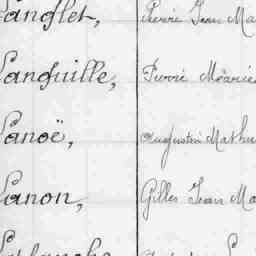 Langlet, Pierre Jean Ma
Languille, Pierre Marie
Lanoë, Augustin Mathu
Lanon, Gilles Jean Ma
Laplanche